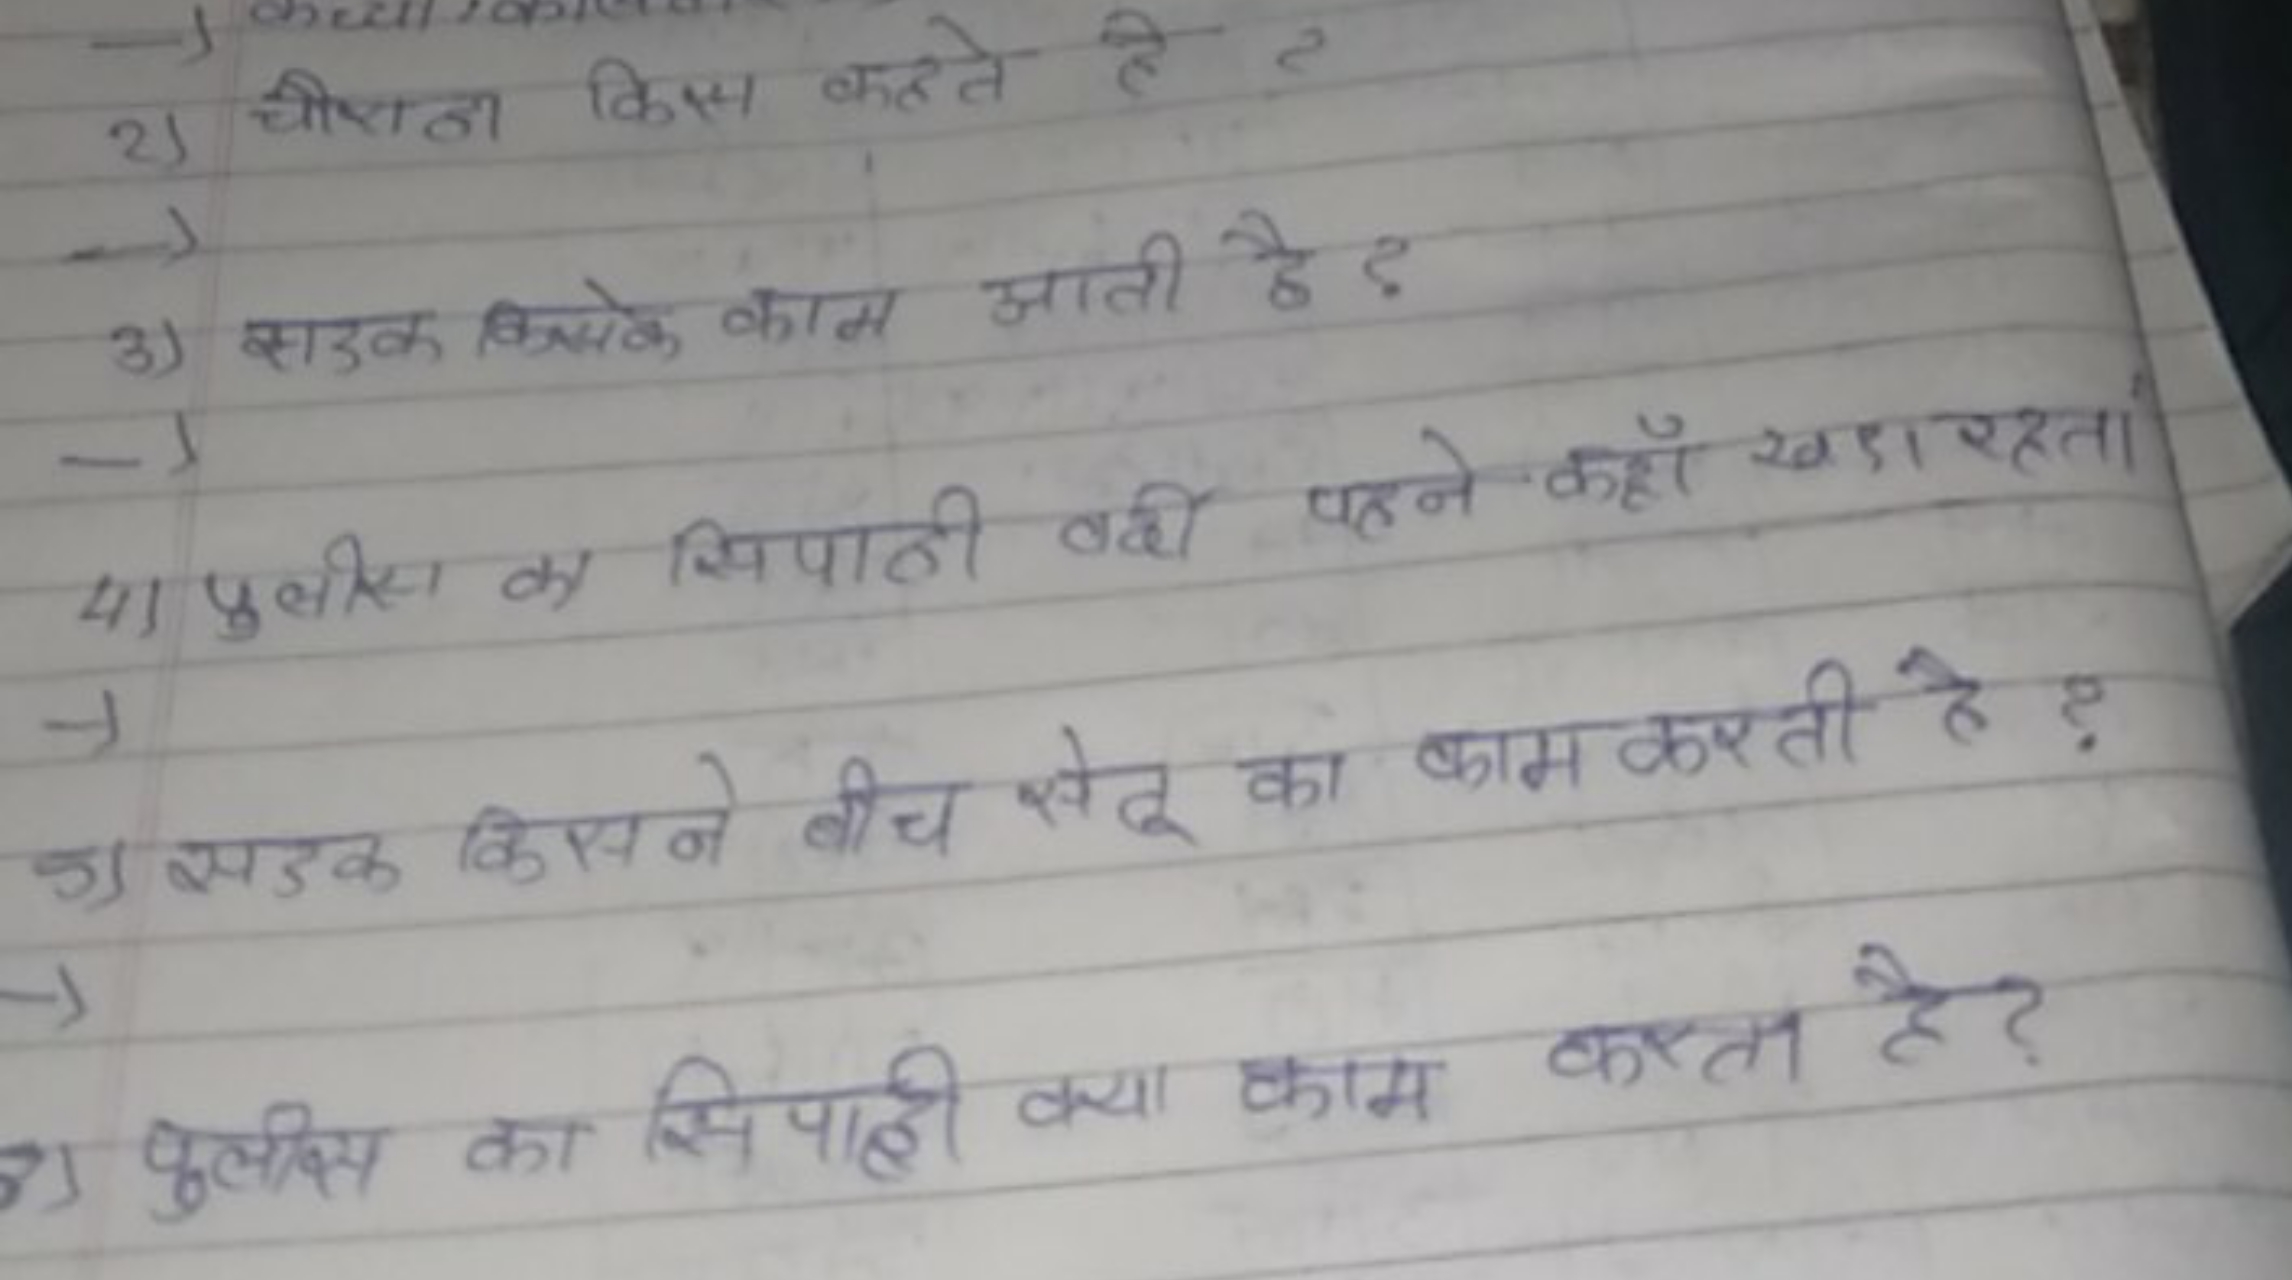 →
2) चौराहा किस कहते है ?
→
3) सडक किसके काम आती है ?
→
4) पुलीस का सिपाही वर्दी पहने कहाँ खडा रहता
→
5) सडक किसने बीच सेतू का काम करती है ?
→
पुलीस का सिपाही क्या काम करता है ?